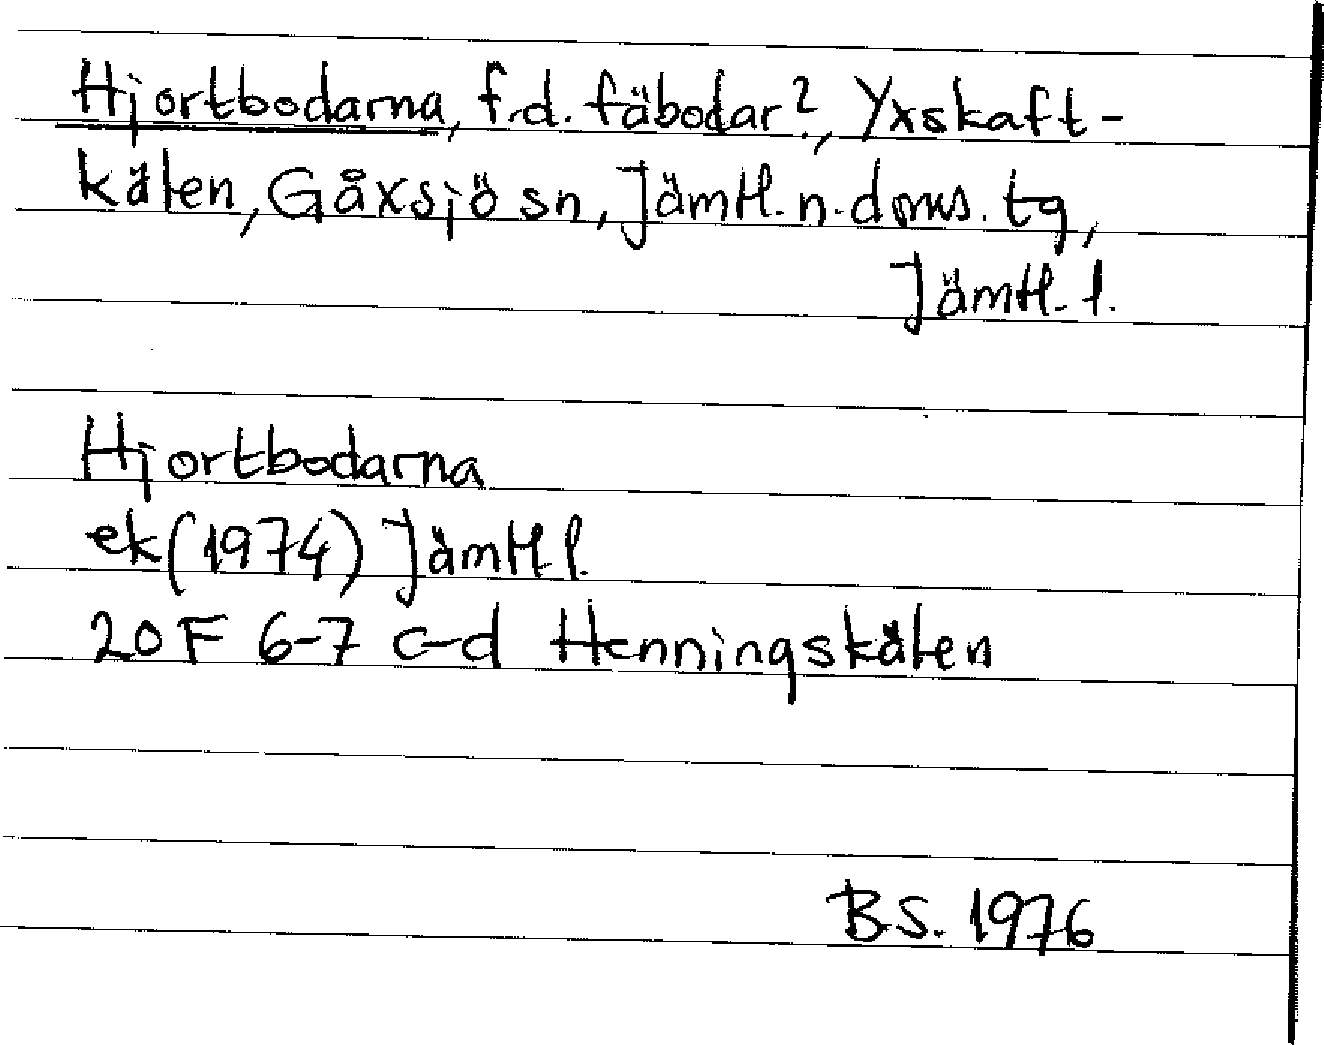 Hjortbodarna, f.d. fäbodar?, Yxskaft-
kälen, Gåxsjö sn, Jämtl. n. doms. tg,
Jämtl. l.
Hjortbodarna
ek (1974) Jämtl. l.
20 F 6-7 c-d Henningskälen
B.S. 1976